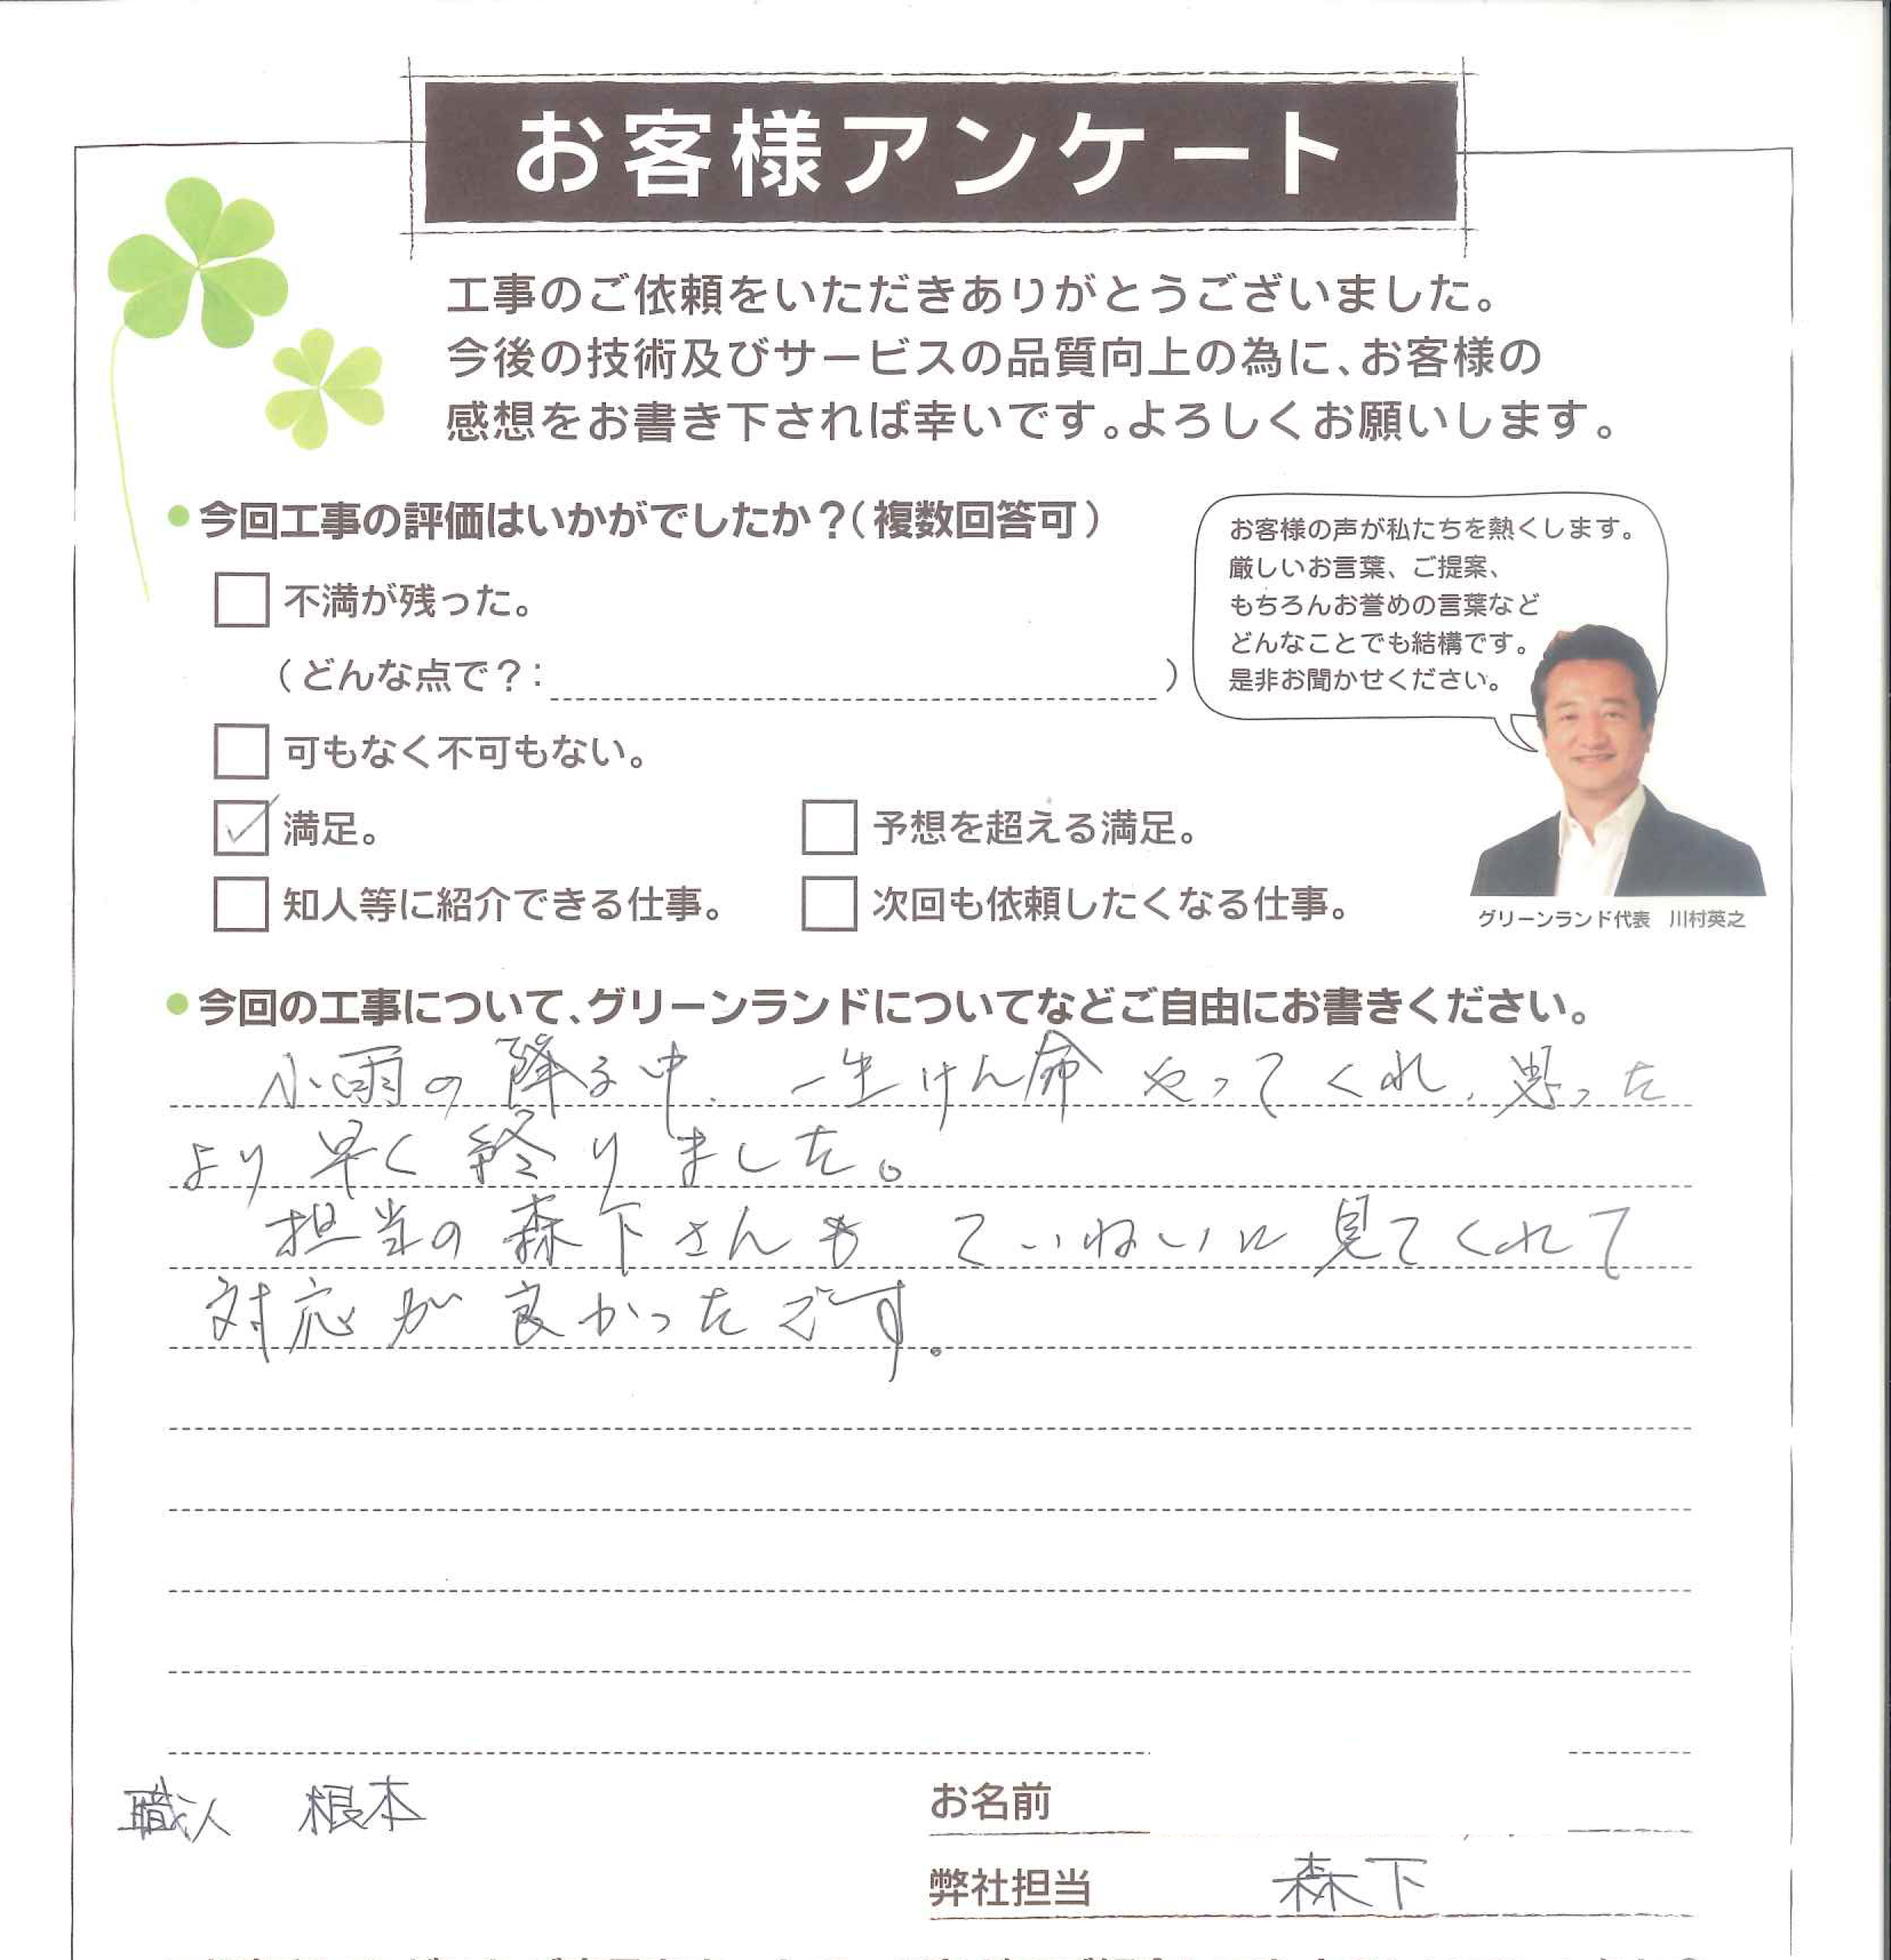 お客様アンケート
工事のご依頼をいただきありがとうございました。
今後の技術及びサービスの品質向上の為に、お客様の
感想をお書き下されば幸いです。よろしくお願いします。
●今回工事の評価はいかがでしたか？（複数回答可）
お客様の声が私たちを熱くします。
厳しいお言葉、ご提案、
もちろんお誉めの言葉など
どんなことでも結構です。
是非お聞かせください。
不満が残った。
（どんな点で？： ）
可もなく不可もない。
満足。
予想を超える満足。
知人等に紹介できる仕事。
次回も依頼したくなる仕事。
グリーンランド代表　川村英之
●今回の工事について、グリーンランドについてなどご自由にお書きください。
小雨の降る中、一生けん命やってくれ、思った
より早く終りました。
担当の森下さんもていねいに見てくれて
対応が良かったです。
職人　根本
お名前
弊社担当　森下